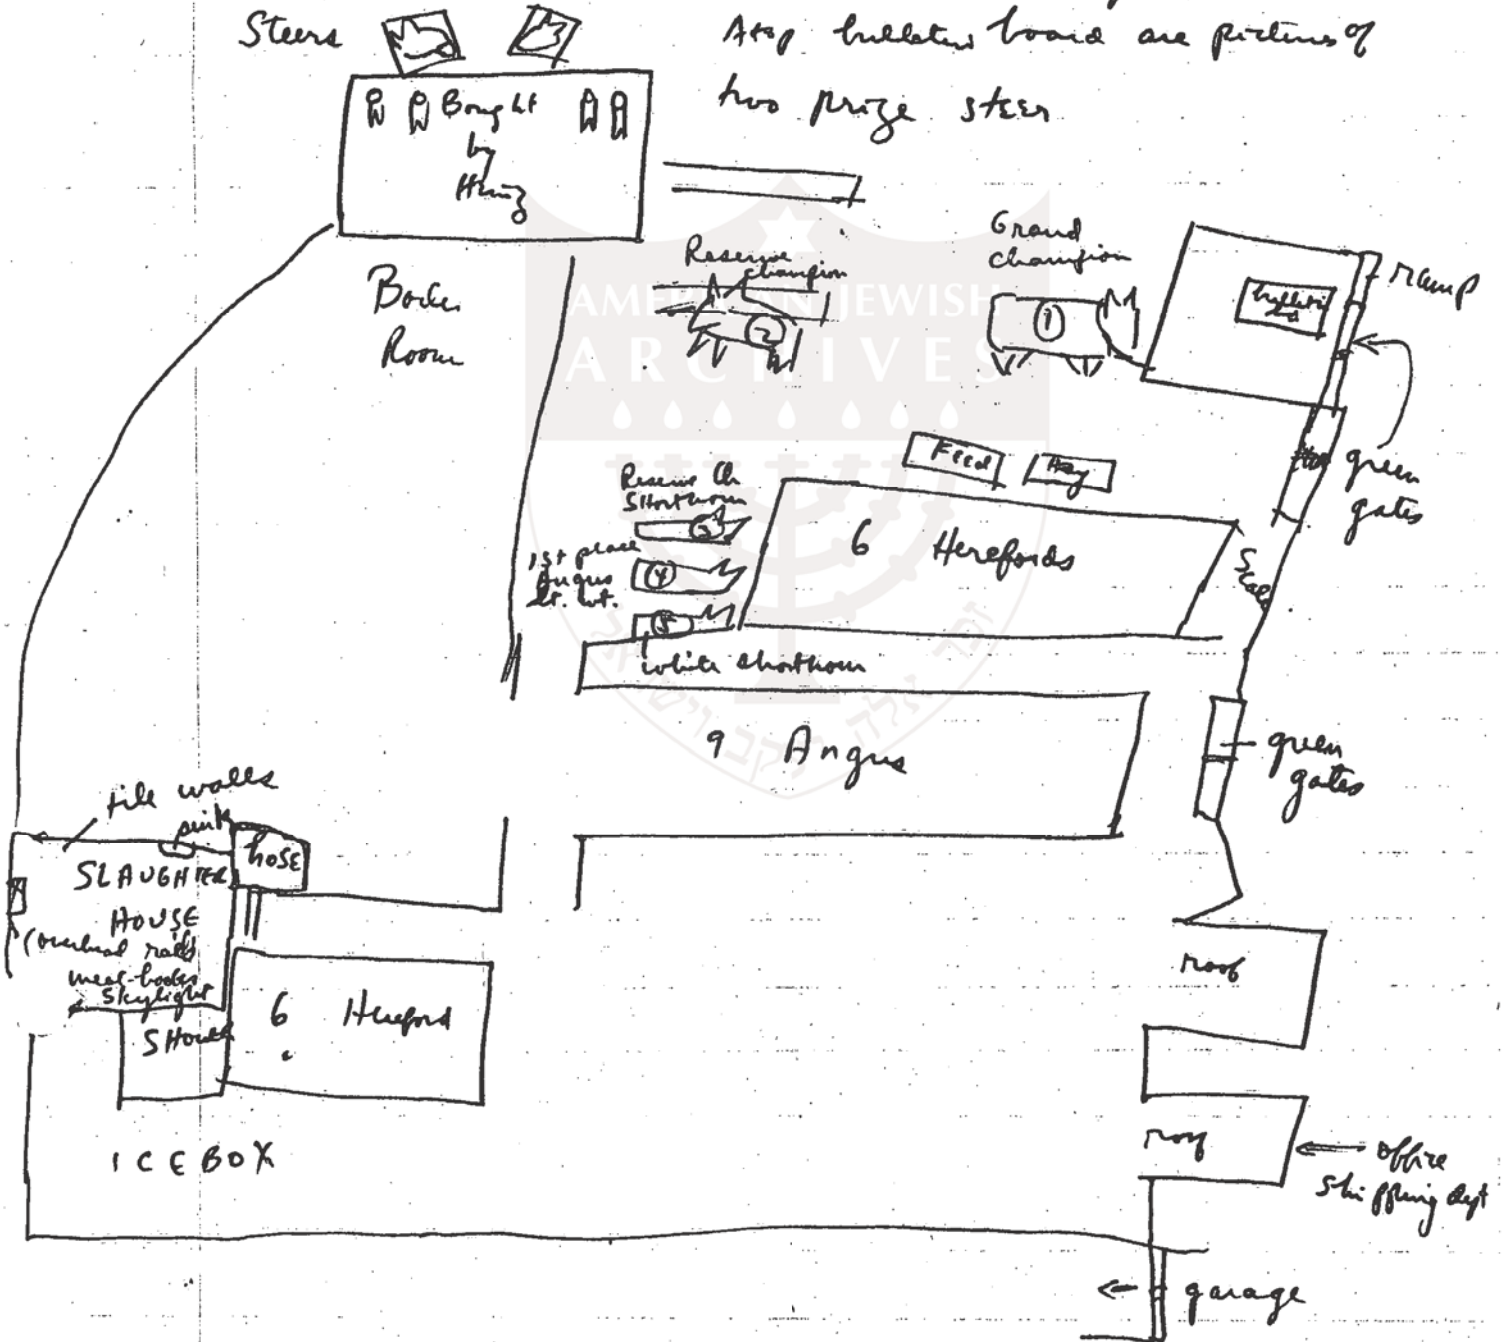 Steers
Atop bulletin board are pictures of
two prize steer
Bought
by
Boiler
Room
Reserve
champion
2
Grand
champion
1
bulletin
bd
ramp
green
gates
Feed
Hay
Reserve Ch
Shorthorn
3
1st place
Angus
lt. wt.
4
5
white shorthorn
6 Herefords
Scale
9 Angus
green
gates
tile walls
sink
hose
SLAUGHTER
HOUSE
(overhead rails
meat-hooks
skylight
6 Hereford
ICEBOX
roof
roof
office
shipping dept
garage
AMERICAN JEWISH
ARCHIVES